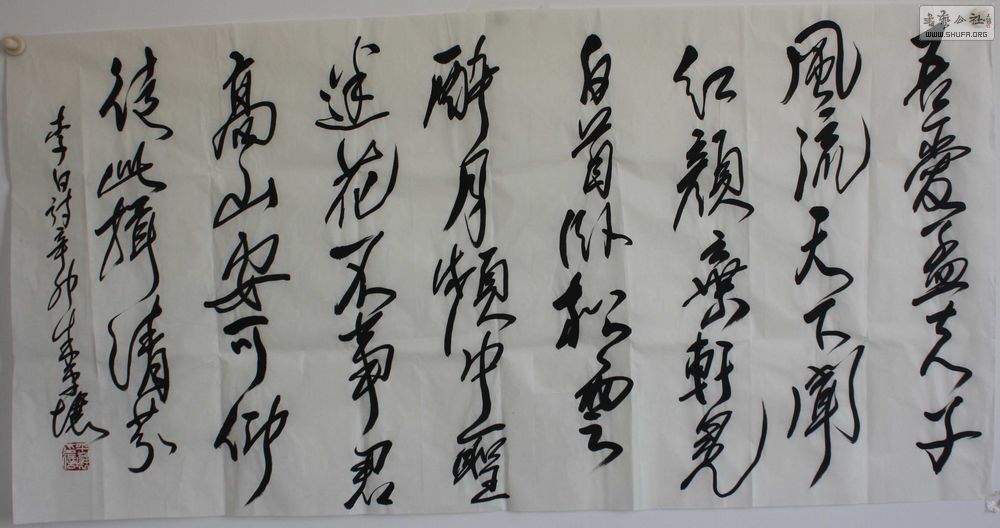 吾愛孟夫子
風流天下聞
紅顏棄軒冕
白首卧松雲
醉月頻中聖
迷花不事君
高山安可仰
徒此揖清芬
李白詩辛卯
書藝公社
WWW.SHUFA.ORG